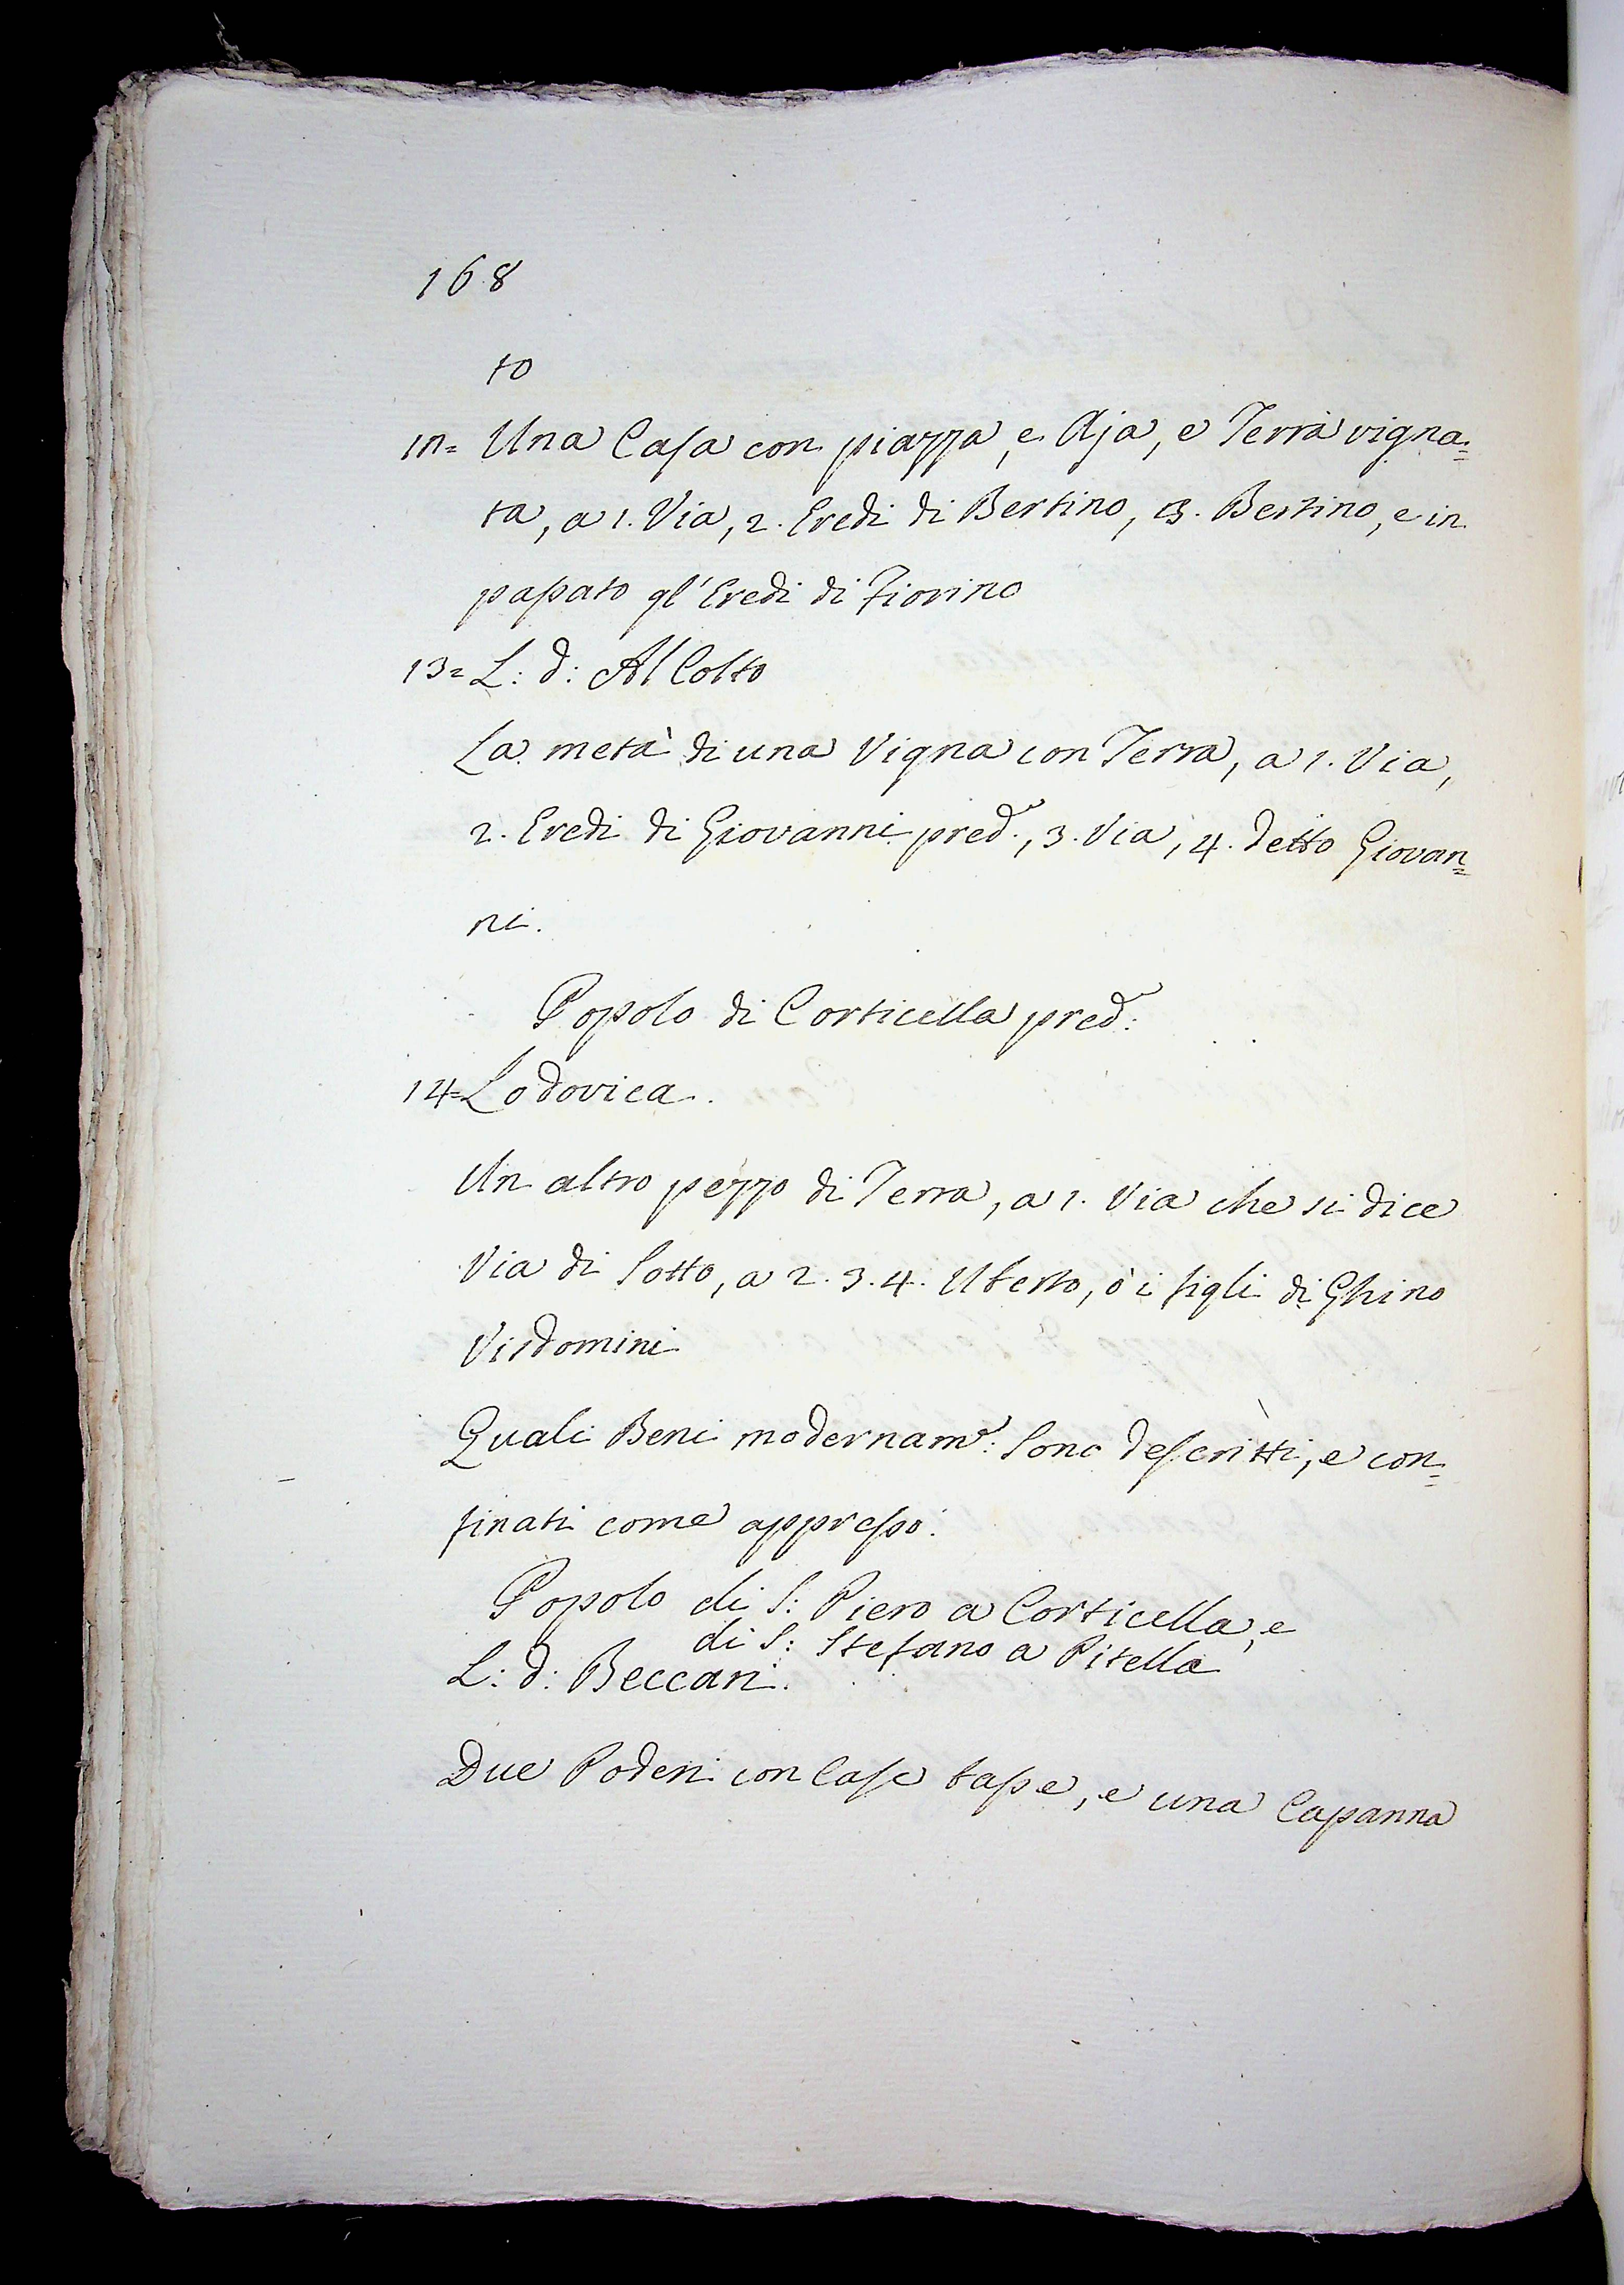 168
to
12= Una Casa con piazza, e Aja, e Terra vigna=
ta, a 1. Via, 2. Eredi di Bertino, 3. Bertino, e in
passato gl'Eredi di Fiorino
13= L: d: Al Colto
La metà di una Vigna con Terra, a 1. Via,
2. Eredi di Giovanni pred.ͦ, 3. Via, 4. detto Giovan=
ni.
Popolo di Corticella pred:ͦ
14= Lodovica.
Un altro pezzo di Terra, a 1. Via che si dice
Via di Sotto, a 2. 3. 4. Uberto, ò i figli di Ghino
Visdomini
Quali Beni modernam:ͤ sono descritti, e con=
finati come appresso.
Popolo di S: Piero a Corticella, e
di S: Stefano a Pitella
L: d: Beccari.
Due Poderi con Case basse, e una Capanna